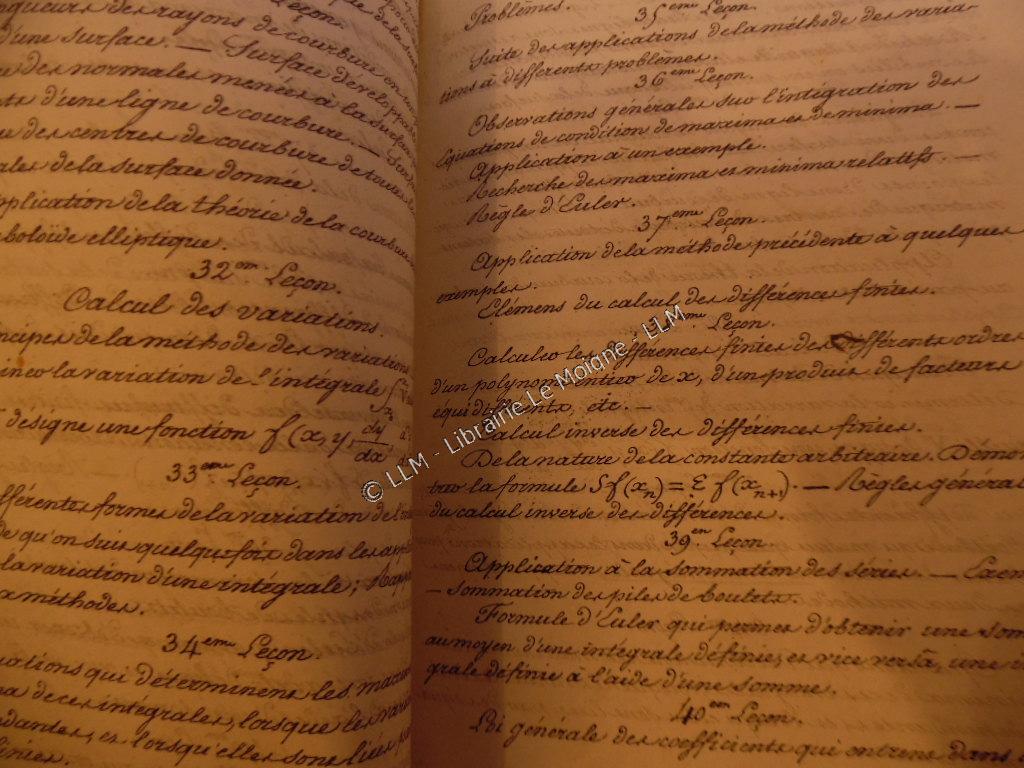 Leçon.
ngueurs des rayons de courbure en un
d'une surface. — Surface développa
e des normales menées à la surface
ts d'une ligne de courbure. —
e des centres de courbure de toutes les
les de la surface donnée.
pplication de la théorie de la courbure
boloïde elliptique.
32.eme Leçon.
Calcul des variations
ncipes de la méthode des variations
la variation de l'intégrale
désigne une fonction f(x, y, dy/dx
33.eme Leçon.
fférentes formes de la variation de l'in
de qu'on suit quelquefois dans les
la variation d'une intégrale;
x méthodes.
34.eme Leçon.
uations qui déterminent les maxi
de ces intégrales, lorsque les
dantes, et lorsqu'elles sont liées
finies.
Problèmes.
35.eme Leçon.
Suite des applications de la méthode des varia-
tions à différents problèmes.
36.eme Leçon.
Observations générales sur l'intégration des
équations de condition de maxima et de minima. —
Application à un exemple.
Recherche des maxima et minima relatifs. —
Règle d'Euler.
37.eme Leçon.
Application de la méthode précédente à quelques
exemples.
Elémens du calcul des différences finies.
eme Leçon.
Calculer les différences finies des différents ordres
d'un polynome entier de x, d'un produit de facteurs
équidifférents, etc. —
Calcul inverse des différences finies.
De la nature de la constante arbitraire. Démon
trer la formule Sf(xₙ) = Σ f(xₙ₊₁). — Règles général
du calcul inverse des différences.
39.em Leçon.
Application à la sommation des séries. — Exem
— sommation des piles de boulets.
Formule d'Euler qui permet d'obtenir une som
au moyen d'une intégrale définie, et vice versâ, une
grale définie à l'aide d'une somme.
40.em Leçon.
Loi générale des coefficients qui entrent dans
© LLM - Librairie Le Moigne - LLM